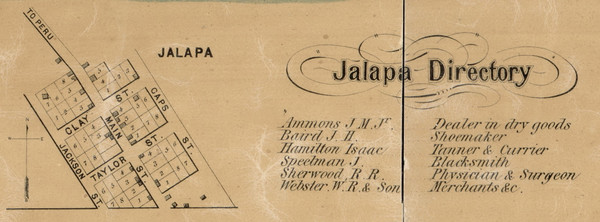 TO PERU
JALAPA
CLAY ST.
MAIN
CAPS ST.
JACKSON ST.
TAYLOR ST.
Jalapa Directory
Ammons J. M. Jr. Dealer in dry goods
Baird J. H. Shoemaker
Hamilton Isaac Tanner & Currier
Speelman J. Blacksmith
Sherwood R. R. Physician & Surgeon
Webster W. R. & Son Merchants &c.